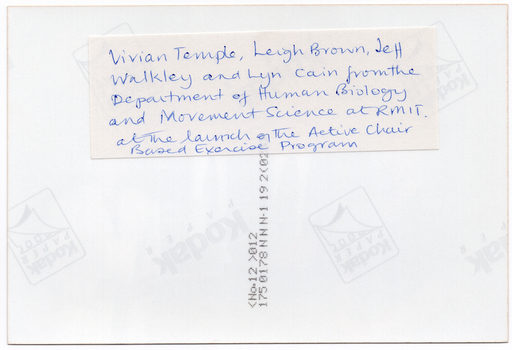 Vivian Temple, Leigh Brown, Jeff
Walkley and Lyn Cain from the
Department of Human Biology
and Movement Science at RMIT.
at the launch of the Active Chair
Based Exercise Program
<No.12 >012
175 0178 N N N-1 19 2(02
Kodak
PAPER
Kodak
Kodak
PAPER
Kodak